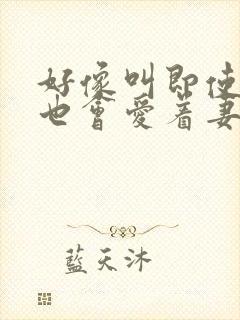 好像叫即使
也會愛着妻
藍天沐